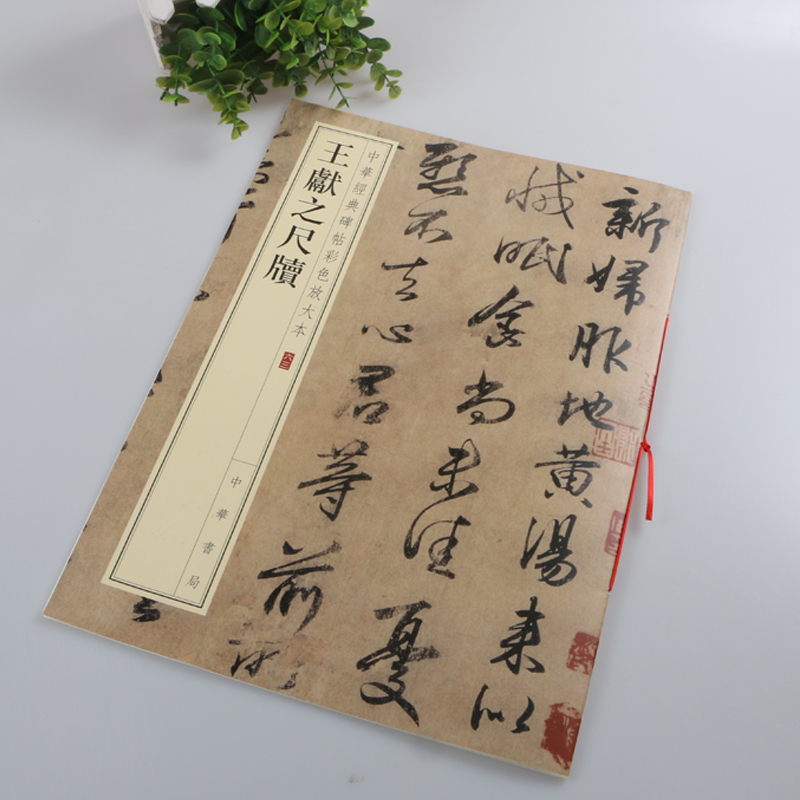 新婦服地黃湯來似
減眠食尚未佳憂
懸不去心君等前所
中華經典碑帖彩色放大本
六三
王獻之尺牘
中華書局